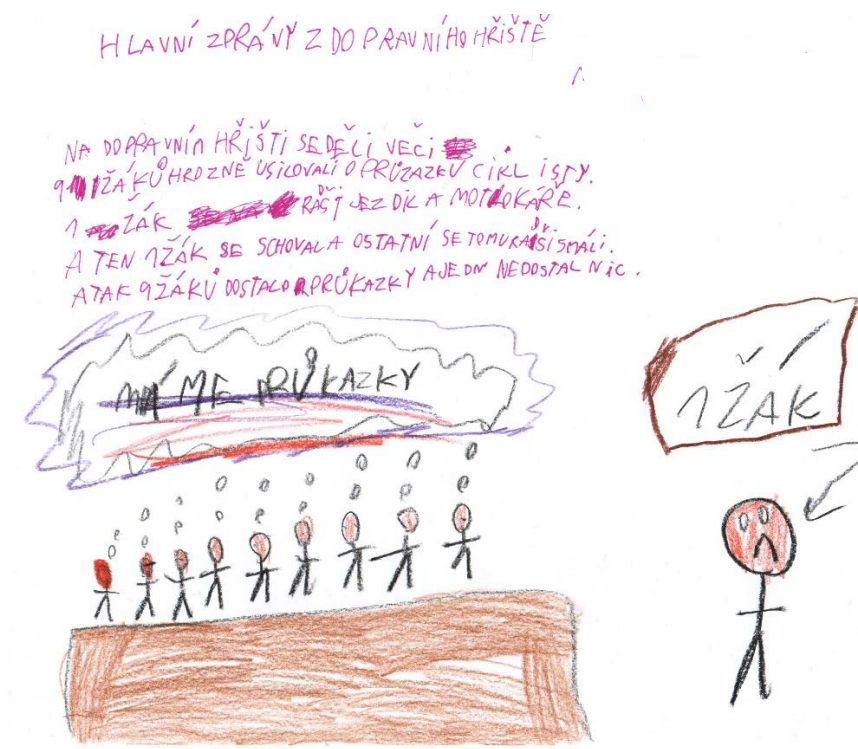 HLAVNÍ ZPRÁVY Z DOPRAVNÍHO HŘIŠTĚ
1.
NA DOPRAVNÍM HŘIŠTI SEDĚLI VEČI
9 ŽÁKŮ HROZNĚ USILOVALI O PRŮZAZKU CIKLISTY.
1 ŽÁK RADŠI JEZDIL A MOTOKÁŘE.
A TEN 1ŽÁK SE SCHOVAL A OSTATNÍ SE TOMU RADŠI SMÁLI.
A TAK 9ŽÁKŮ DOSTALO PRŮKAZKY A JEDN NEDOSTAL NIC.
MÁME PRŮKAZKY
1ŽÁK